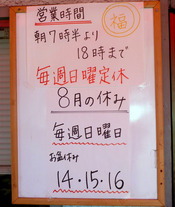 営業時間
福
朝7時半より
18時まで
毎週日曜定休
8月の休み
毎週日曜日
お盆休み
14・15・16